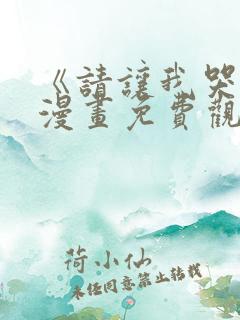 《請讓我哭
漫畫免費觀
荷小仙
未經同意禁止轉載